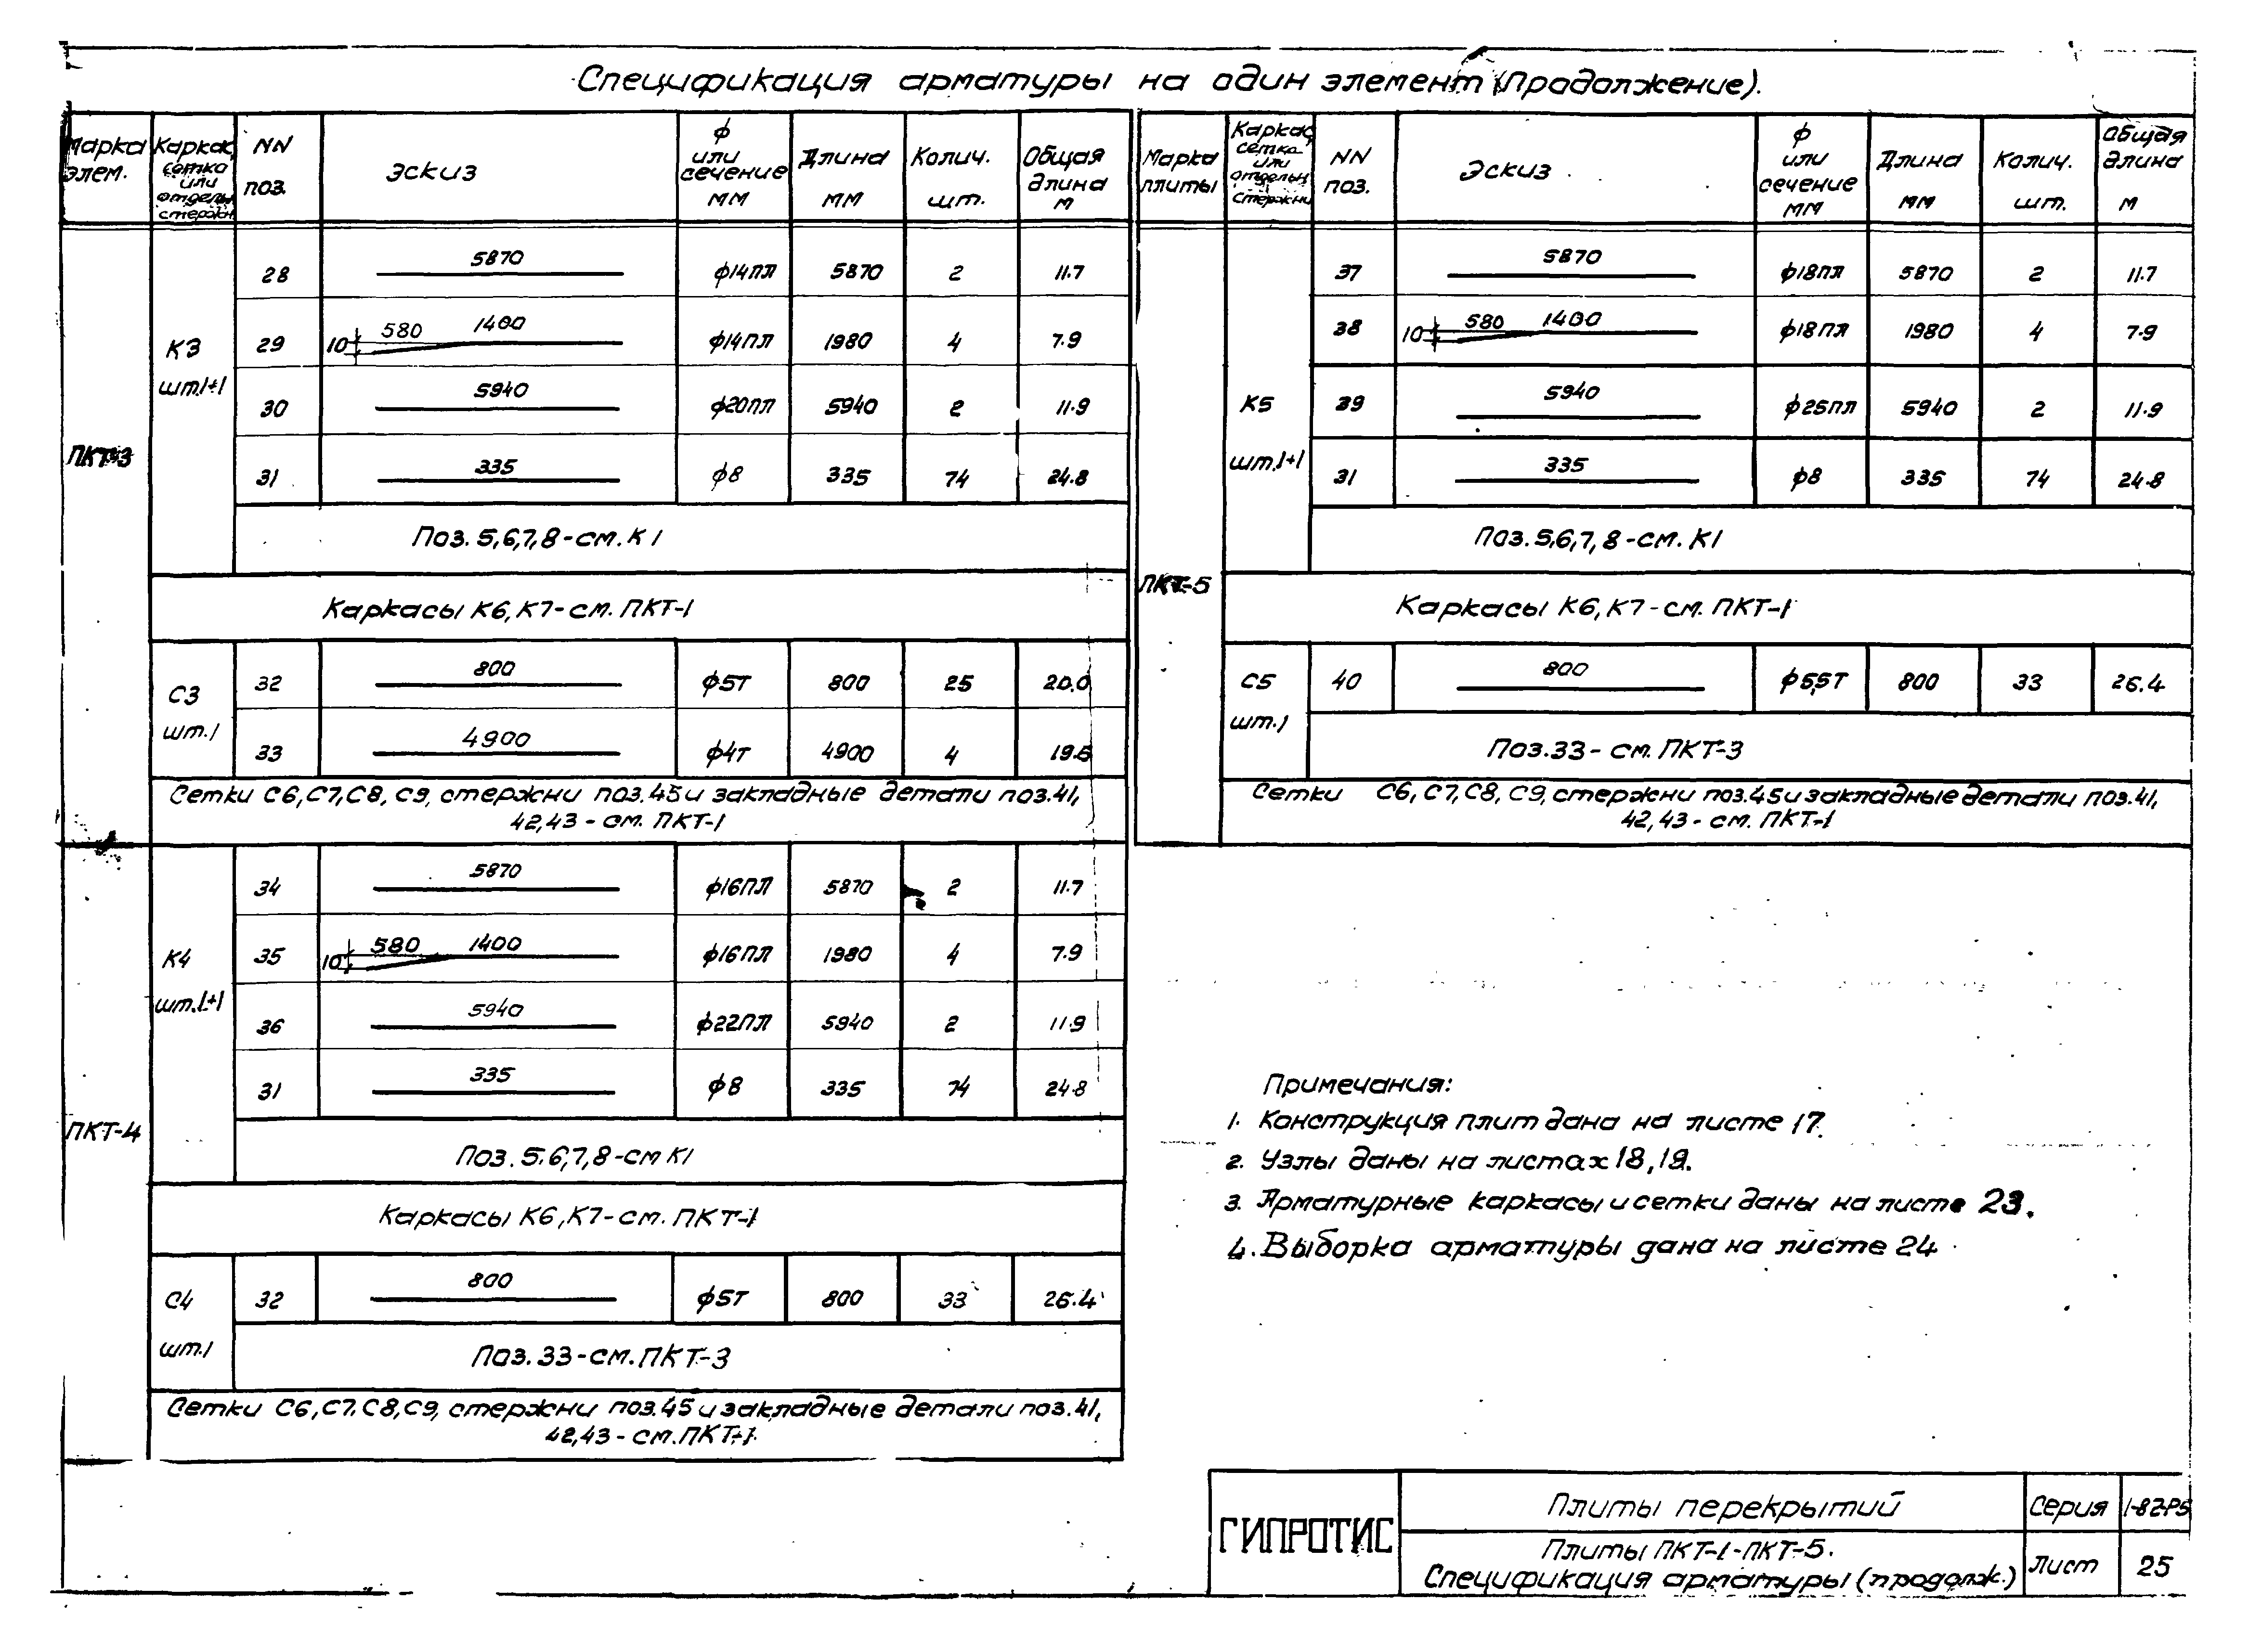 Спецификация арматуры на один элемент (Продолжение).
Марка элем. Каркас, сетка или отдельн. стержн. NN поз. Эскиз ф или сечение мм Длина мм Колич. шт. Общая длина м
ПКТ-3
К3 шт.1+1
28 5870 ф14пл 5870 2 11.7
29 10 580 1400 ф14пл 1980 4 7.9
30 5940 ф20пл 5940 2 11.9
31 335 ф8 335 74 24.8
Поз. 5,6,7,8-см. К1
Каркасы К6, К7-см. ПКТ-1
С3 шт.1
32 800 ф5т 800 25 20.0
33 4900 ф4т 4900 4 19.6
Сетки С6, С7, С8, С9, стержни поз.45 и закладные детали поз.41,
42,43-см. ПКТ-1
ПКТ-4
К4 шт.1+1
34 5870 ф16пл 5870 2 11.7
35 10 580 1400 ф16пл 1980 4 7.9
36 5940 ф22пл 5940 2 11.9
31 335 ф8 335 74 24.8
Поз. 5,6,7,8-см К1
Каркасы К6, К7-см. ПКТ-1
С4 шт.1
32 800 ф5т 800 33 26.4
Поз. 33-см. ПКТ-3
Сетки С6, С7, С8, С9, стержни поз.45 и закладные детали поз.41,
42,43-см. ПКТ-1
Марка плиты Каркас, сетка или отдельн. стержни NN поз. Эскиз ф или сечение мм Длина мм Колич. шт. Общая длина м
ПКТ-5
К5 шт.1+1
37 5870 ф18пл 5870 2 11.7
38 10 580 1400 ф18пл 1980 4 7.9
39 5940 ф25пл 5940 2 11.9
31 335 ф8 335 74 24.8
Поз. 5,6,7,8-см. К1
Каркасы К6, К7-см. ПКТ-1
С5 шт.1
40 800 ф5,5т 800 33 26.4
Поз.33-см. ПКТ-3
Сетки С6, С7, С8, С9, стержни поз.45 и закладные детали поз.41,
42,43-см. ПКТ-1
Примечания:
1. Конструкция плит дана на листе 17.
2. Узлы даны на листах 18,19.
3. Арматурные каркасы и сетки даны на листе 23.
4. Выборка арматуры дана на листе 24
ГИПРОТИС
Плиты перекрытий
Серия 1-82-Р5
Плиты ПКТ-1-ПКТ-5.
Спецификация арматуры (продолж.)
Лист 25